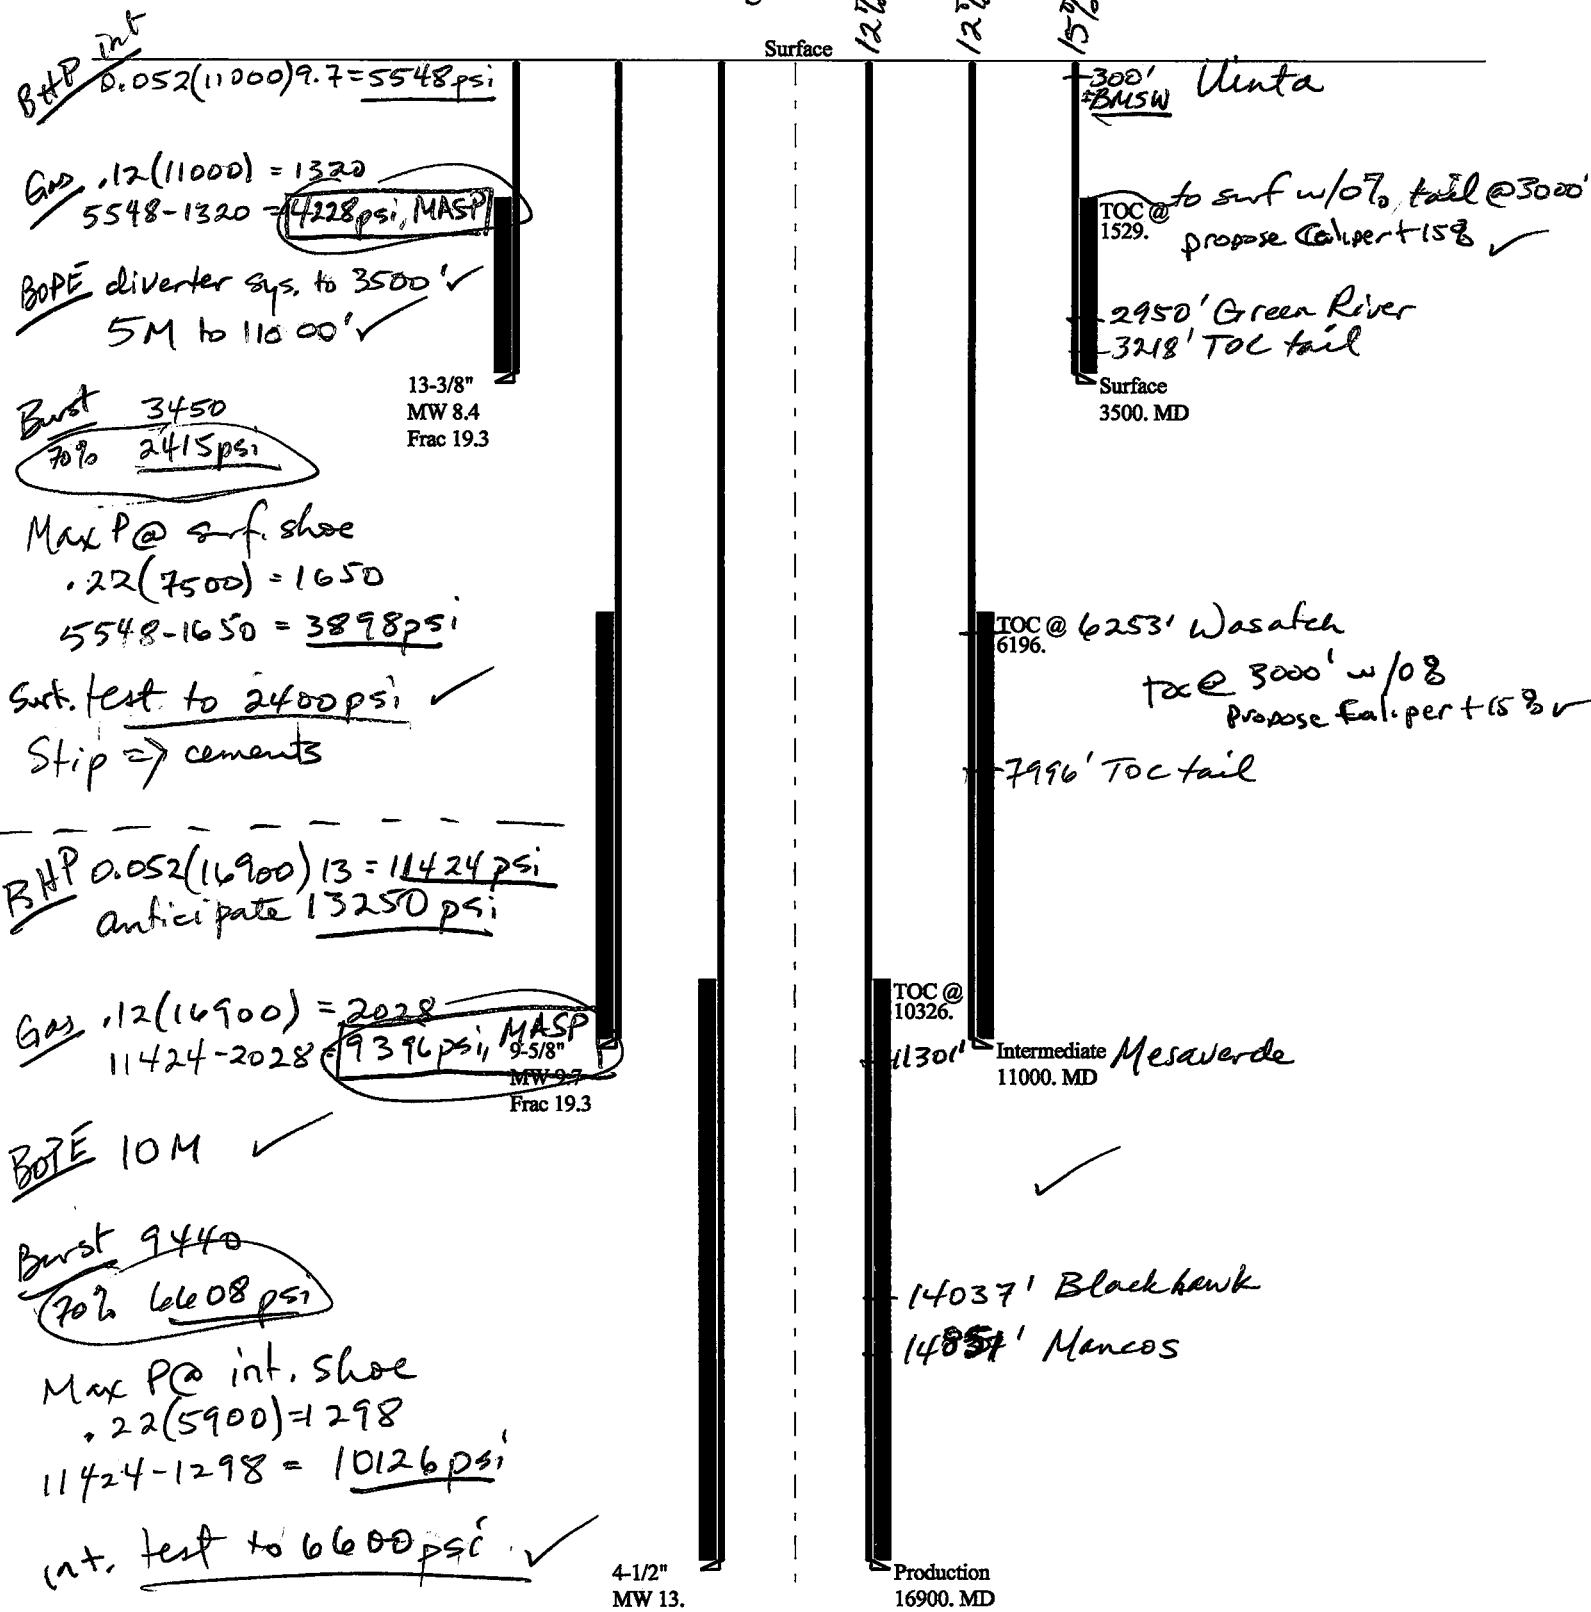 Surface
12%
12%
15%
BHP int
0.052(11000)9.7=5548psi
Gas .12(11000) = 1320
5548-1320 = 4228psi, MASP
BOPE diverter sys. to 3500' ✓
5M to 11000' ✓
13-3/8"
MW 8.4
Frac 19.3
Burst 3450
70% 2415psi
Max P@ surf. shoe
.22(7500) = 1650
5548-1650 = 3898psi
Surf. test to 2400psi ✓
Stip => cements
BHP 0.052(16900)13 = 11424psi
anticipate 13250psi
Gas .12(16900) = 2028
11424-2028 = 9396psi, MASP
9-5/8"
MW 9.7
Frac 19.3
BOPE 10M ✓
Burst 9440
70% 6608psi
Max P@ int. shoe
.22(5900)=1298
11424-1298 = 10126psi
int. test to 6600psi ✓
4-1/2"
MW 13.
300' Uinta
±BMSW
TOC @
1529.
to surf w/0%, tail @3000'
propose Caliper+15% ✓
2950' Green River
3218' TOC tail
Surface
3500. MD
TOC @
6196.
6253' Wasatch
toc@ 3000' w/0%
propose Caliper+15% ✓
7996' TOC tail
TOC @
10326.
11301' Mesaverde
Intermediate
11000. MD
✓
14037' Blackhawk
Mancos
Production
16900. MD